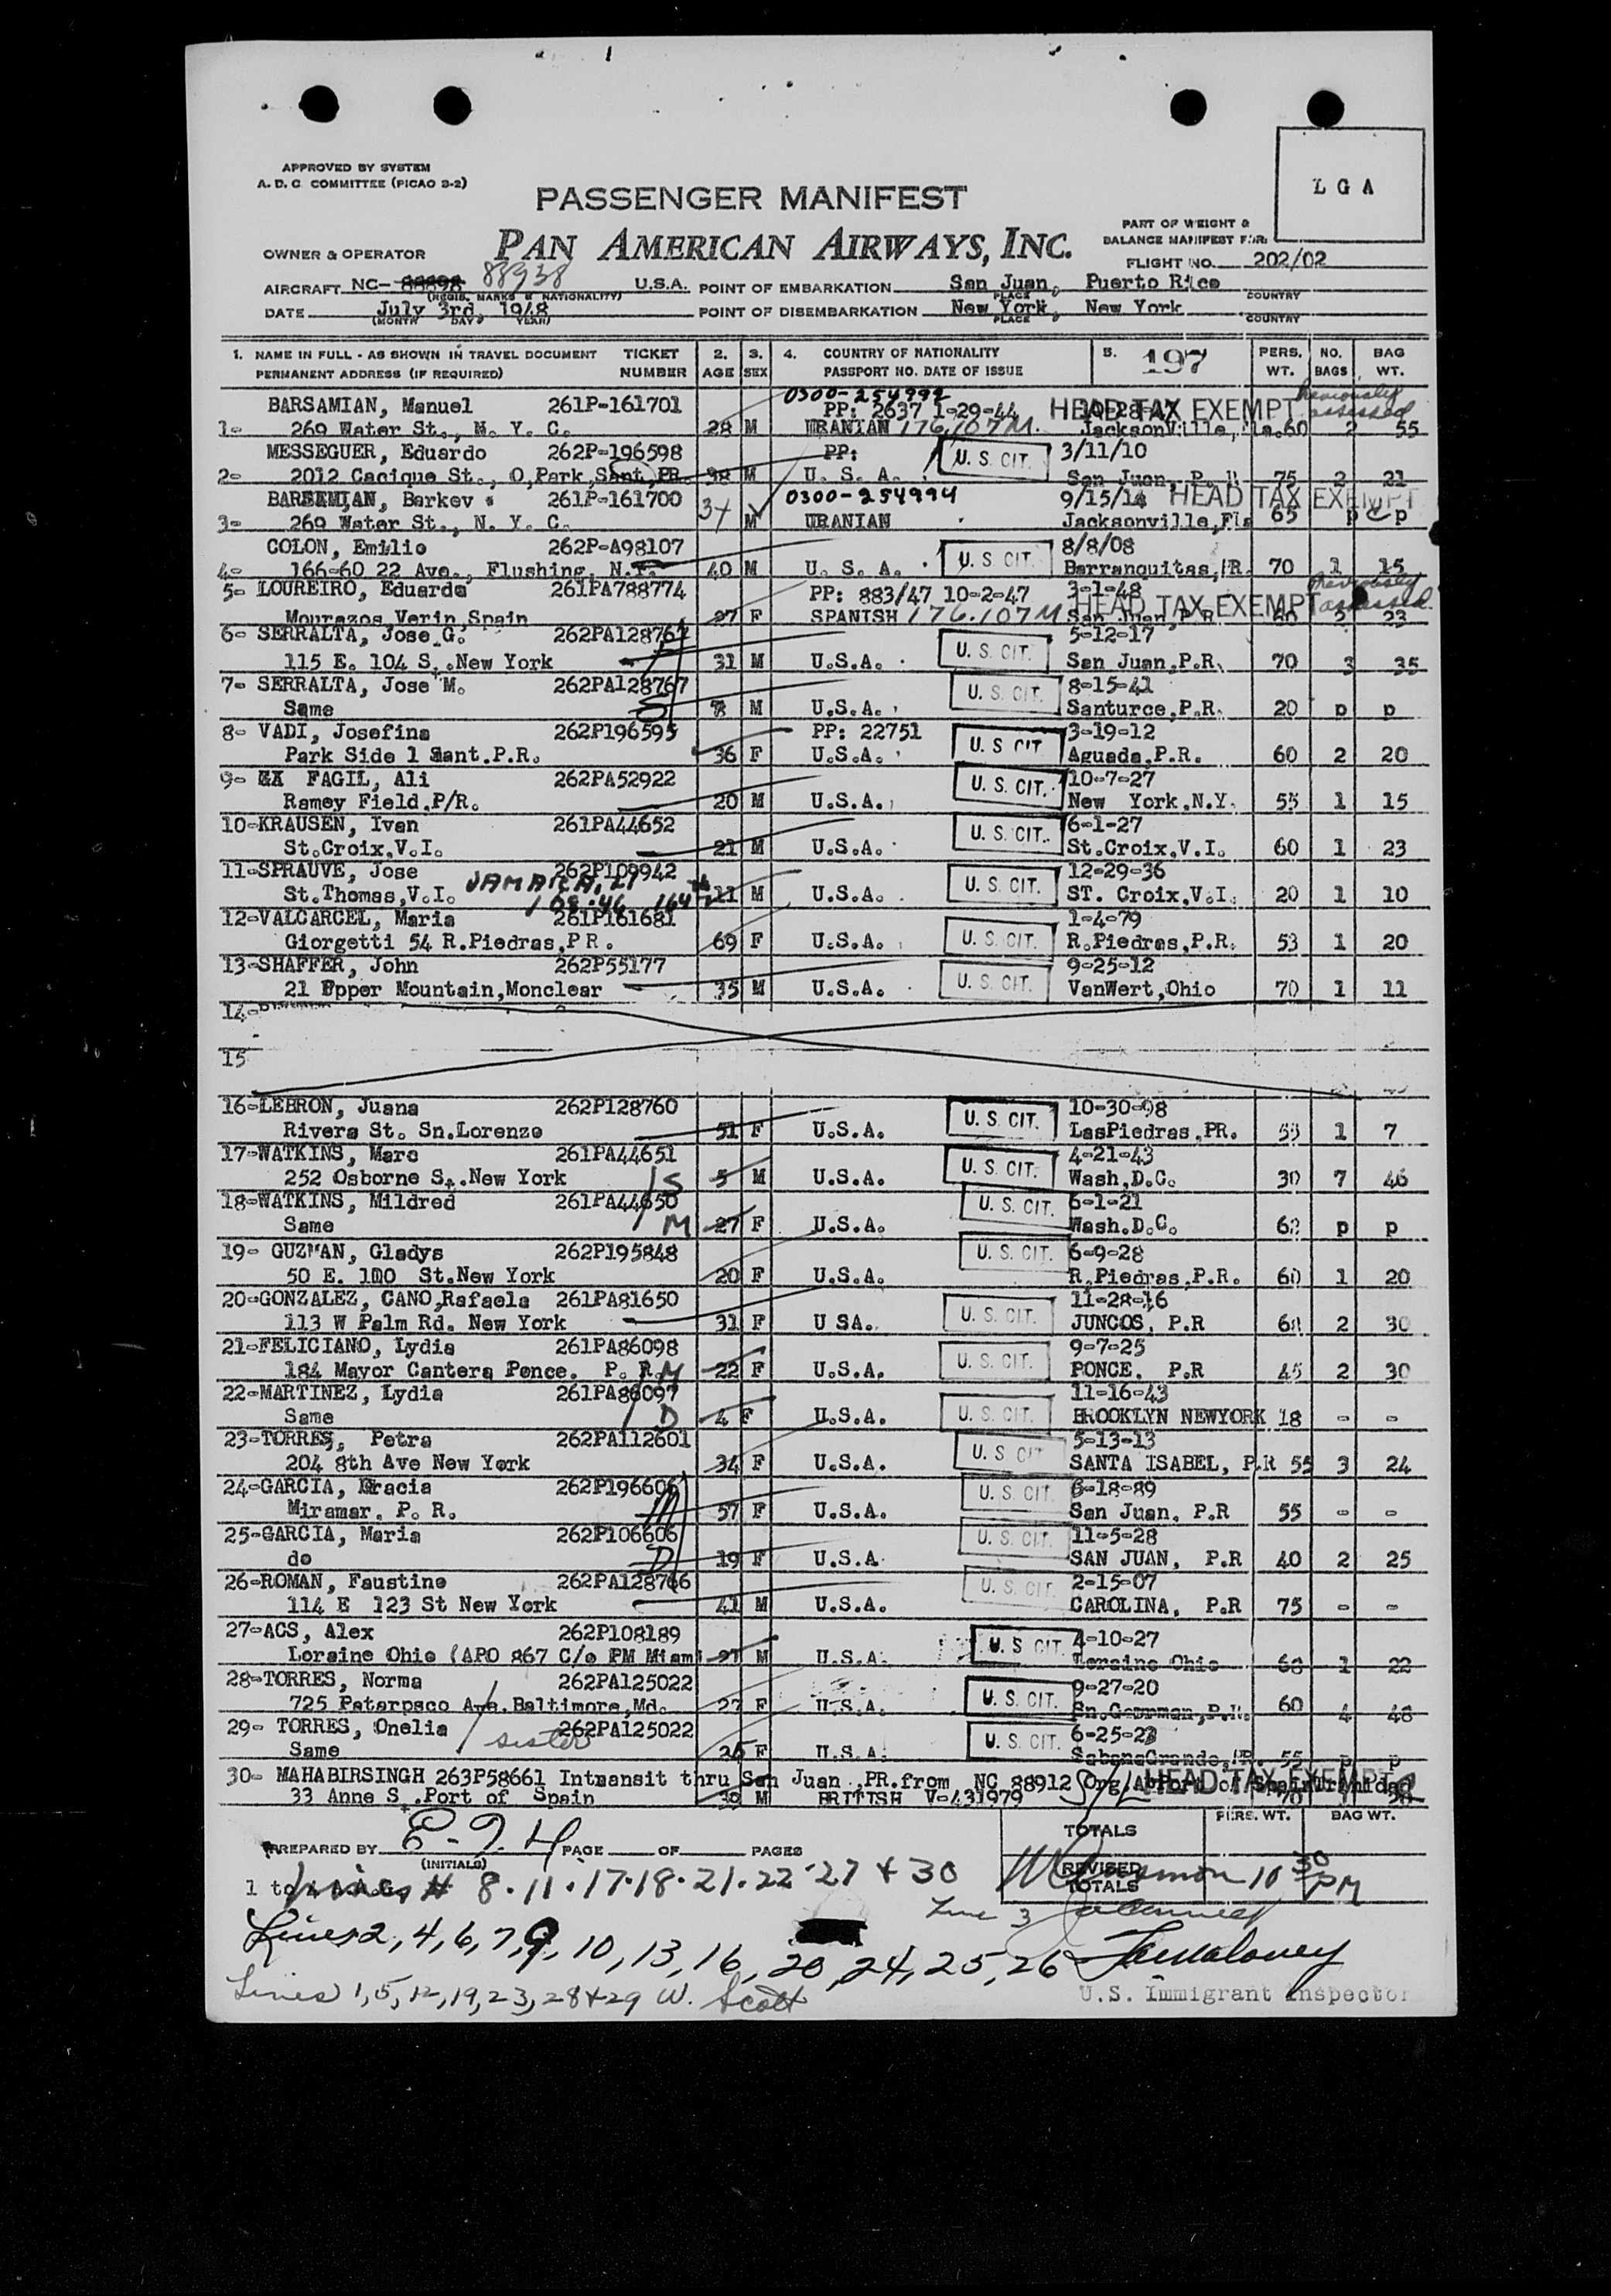 APPROVED BY SYSTEM
A. D. C. COMMITTEE (PICAO 3-2)
L G A
PASSENGER MANIFEST
PART OF WEIGHT &
BALANCE MANIFEST FOR:
OWNER & OPERATOR PAN AMERICAN AIRWAYS, INC.
FLIGHT NO. 202/02
AIRCRAFT NC-88898 88938 U.S.A. POINT OF EMBARKATION San Juan, Puerto Rico
(REGIS. MARKS & NATIONALITY) PLACE COUNTRY
DATE July 3rd, 1948 POINT OF DISEMBARKATION New York, New York
(MONTH DAY YEAR) PLACE COUNTRY
1. NAME IN FULL - AS SHOWN IN TRAVEL DOCUMENT TICKET 2. 3. 4. COUNTRY OF NATIONALITY 5. 197 PERS. NO. BAG
PERMANENT ADDRESS (IF REQUIRED) NUMBER AGE SEX PASSPORT NO. DATE OF ISSUE WT. BAGS WT.
0300-254992 Previously
BARSAMIAN, Manuel 261P-161701 PP: 2637 1-29-44 HEAD TAX EXEMPT assessed
1- 269 Water St., N. Y. C. 28 M URANIAN 176,107 M. Jacksonville, 60 2 55
MESSEGUER, Eduardo 262P-196598 PP: U. S. CIT. 3/11/10
2- 2012 Cacique St., O,Park,Sant,PR. 38 M U. S. A. San Juan, P. R 75 2 21
BARSEMIAN, Barkev 261P-161700 34 0300-254994 9/15/14 HEAD TAX EXEMPT
3- 269 Water St., N. Y. C. M URANIAN Jacksonville,Fla 65 p p
COLON, Emilio 262P-A98107 U. S. CIT. 8/8/08
4- 166-60 22 Ave., Flushing, N.Y. 40 M U. S. A. Barranquitas, PR. 70 1 15
5- LOUREIRO, Eduarda 261PA788774 PP: 883/47 10-2-47 3-1-48 HEAD TAX EXEMPT Previously assessed
Mourazos Verin Spain 27 F SPANISH 176,107 M San Juan P R 60 2 23
6- SERRALTA, Jose G. 262PA128767 U. S. CIT. 5-12-17
115 E. 104 St.New York 31 M U.S.A. San Juan,P.R. 70 3 35
7- SERRALTA, Jose M. 262PA128767 U. S. CIT. 8-15-41
Same S 7 M U.S.A. Santurce,P.R. 20 p p
8- VADI, Josefina 262P196595 PP: 22751 U. S CIT 3-19-12
Park Side 1 Sant.P.R. 36 F U.S.A. Aguada,P.R. 60 2 20
9- FAGIL, Ali 262PA52922 U. S. CIT. 10-7-27
Ramey Field,P/R. 20 M U.S.A. New York,N.Y. 55 1 15
10-KRAUSEN, Ivan 261PA44652 U. S. CIT. 6-1-27
St.Croix,V.I. 21 M U.S.A. St.Croix,V.I. 60 1 23
11-SPRAUVE, Jose 262P109942 U. S. CIT. 12-29-36
St.Thomas,V.I. JAMAICA, LI 108-46 164th 11 M U.S.A. ST. Croix,V.I. 20 1 10
12-VALCARCEL, Maria 261P161681 U. S. CIT. 1-4-79
Giorgetti 54 R.Piedras,P R. 69 F U.S.A. R.Piedras,P.R. 53 1 20
13-SHAFFER, John 262P55177 U. S. CIT. 9-25-12
21 Upper Mountain,Monclear 35 M U.S.A. VanWert,Ohio 70 1 11
14-
15
16-LEBRON, Juana 262P128760 U. S. CIT. 10-30-98
Rivera St. Sn.Lorenzo 51 F U.S.A. LasPiedras,PR. 55 1 7
17-WATKINS, Marc 261PA44651 U. S. CIT. 4-21-43
252 Osborne St.New York S 5 M U.S.A. Wash,D.C. 30 7 46
18-WATKINS, Mildred 261PA44650 U. S. CIT. 6-1-21
Same M 27 F U.S.A. Wash.D.C. 62 p p
19- GUZMAN, Gladys 262P195848 U. S. CIT. 6-9-28
50 E. 100 St.New York 20 F U.S.A. R.Piedras,P.R. 60 1 20
20-GONZALEZ, CANO,Rafaela 261PA81650 U. S. CIT. 11-28-16
113 W Palm Rd. New York 31 F U SA. JUNCOS, P.R 60 2 30
21-FELICIANO, Lydia 261PA86098 U. S. CIT. 9-7-25
184 Mayor Cantera Ponce. P. R. M 22 F U.S.A. PONCE. P.R 45 2 30
22-MARTINEZ, Lydia 261PA86097 U. S. CIT. 11-16-43
Same D 4 F U.S.A. BROOKLYN NEWYORK 18 - -
23-TORRES, Petra 262PA112601 U. S CIT 5-13-13
204 8th Ave New York 34 F U.S.A. SANTA ISABEL, P.R 55 3 24
24-GARCIA, Gracia 262P196606 U. S. CIT. 6-18-89
Miramar. P. R. M 57 F U.S.A. San Juan. P.R 55 - -
25-GARCIA, Maria 262P106606 U. S. CIT. 11-5-28
do D 19 F U.S.A. SAN JUAN, P.R 40 2 25
26-ROMAN, Faustino 262PA128766 U. S. CIT. 2-15-07
114 E 123 St New York 41 M U.S.A. CAROLINA, P.R 75 - -
27-ACS, Alex 262P108189 U. S CIT 4-10-27
Loraine Ohio (APO 867 C/o PM Miami 21 M U.S.A. Loraine Ohio 60 1 22
28-TORRES, Norma 262PA125022 U. S. CIT. 9-27-20
725 Patarpsco Ave.Baltimore,Md. 27 F U.S.A. Sn.German,P.R. 60 4 48
29- TORRES, Onelia sister 262PA125022 U. S. CIT. 6-25-23
Same 25 F U.S.A. SabanaGrande,PR. 55 p p
30- MAHABIRSINGH 263P58661 Intransit thru San Juan ,PR.from NC 88912 HEAD TAX EXEMPT Port of Spain Trinidad
33 Anne St.Port of Spain 39 M BRITISH V-431979 70
TOTALS PERS. WT. BAG WT.
PREPARED BY E.J.H PAGE OF PAGES
(INITIALS) REVISED TOTALS
1 to # 8·11·17·18·21·22·27 + 30 10 30 PM
Line 3
Lines 2, 4, 6, 7, 9, 10, 13, 16, 20, 24, 25, 26
Lines 1, 5, 12, 19, 23, 28+29 W. Scott U.S. Immigrant Inspector